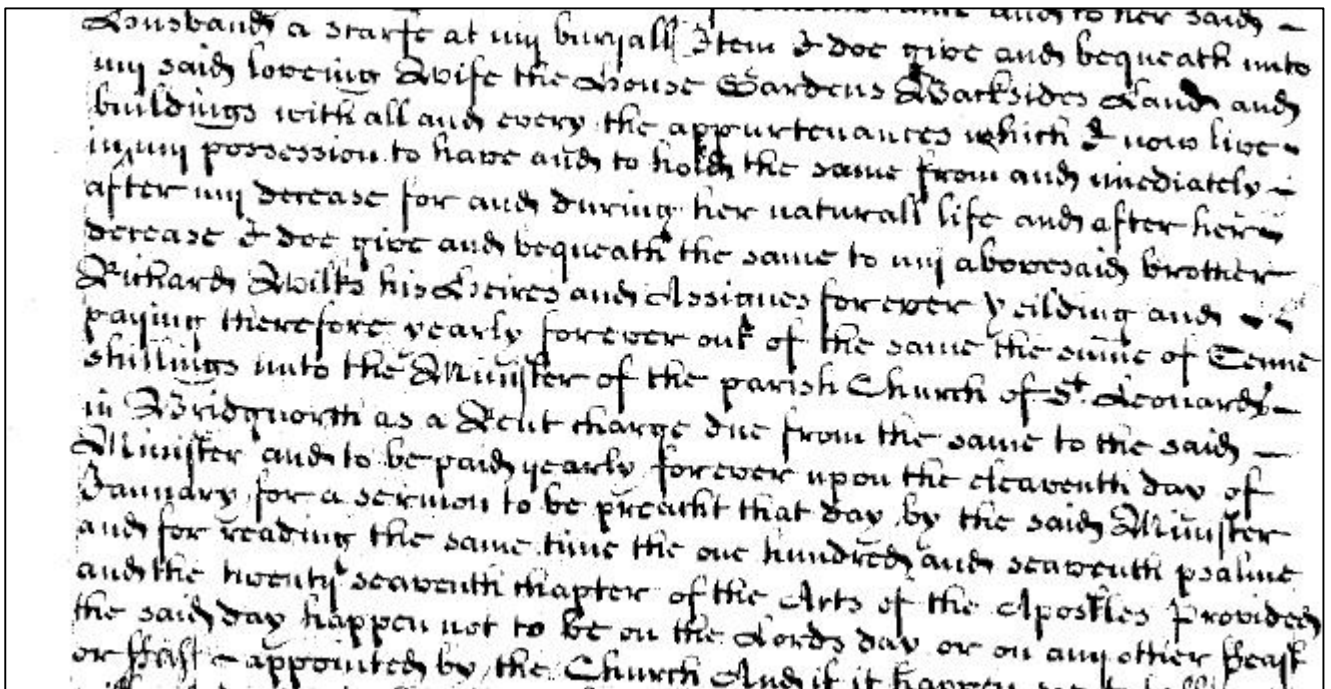 and to her said
Husband a Scarfe at my buryall Item I doe give and bequeath unto
my said loveing Wife the House Gardens Backsides Land and
buildings with all and every the appurtenances which I now live
in my possession to have and to hold the same from and imediately
after my decease for and during her naturall life and after her
decease I doe give and bequeath the same to my abovesaid brother
Richard Wilks his Heires and Assignes for ever yeilding and
paying therefore yearly forever out of the same the sume of Tenne
shillings unto the Minister of the parish Church of St. Leonards
in Bridgnorth as a Rent charge due from the same to the said
Minister and to be paid yearly forever upon the eleaventh day of
January for a sermon to be preacht that day by the said Minister
and for reading the same time the one hundred and seaventh psalme
and the twenty seaventh chapter of the Acts of the Apostles Provided
the said day happen not to be on the Lords day or on any other ffeast
or ffast appointed by the Church And if it happen